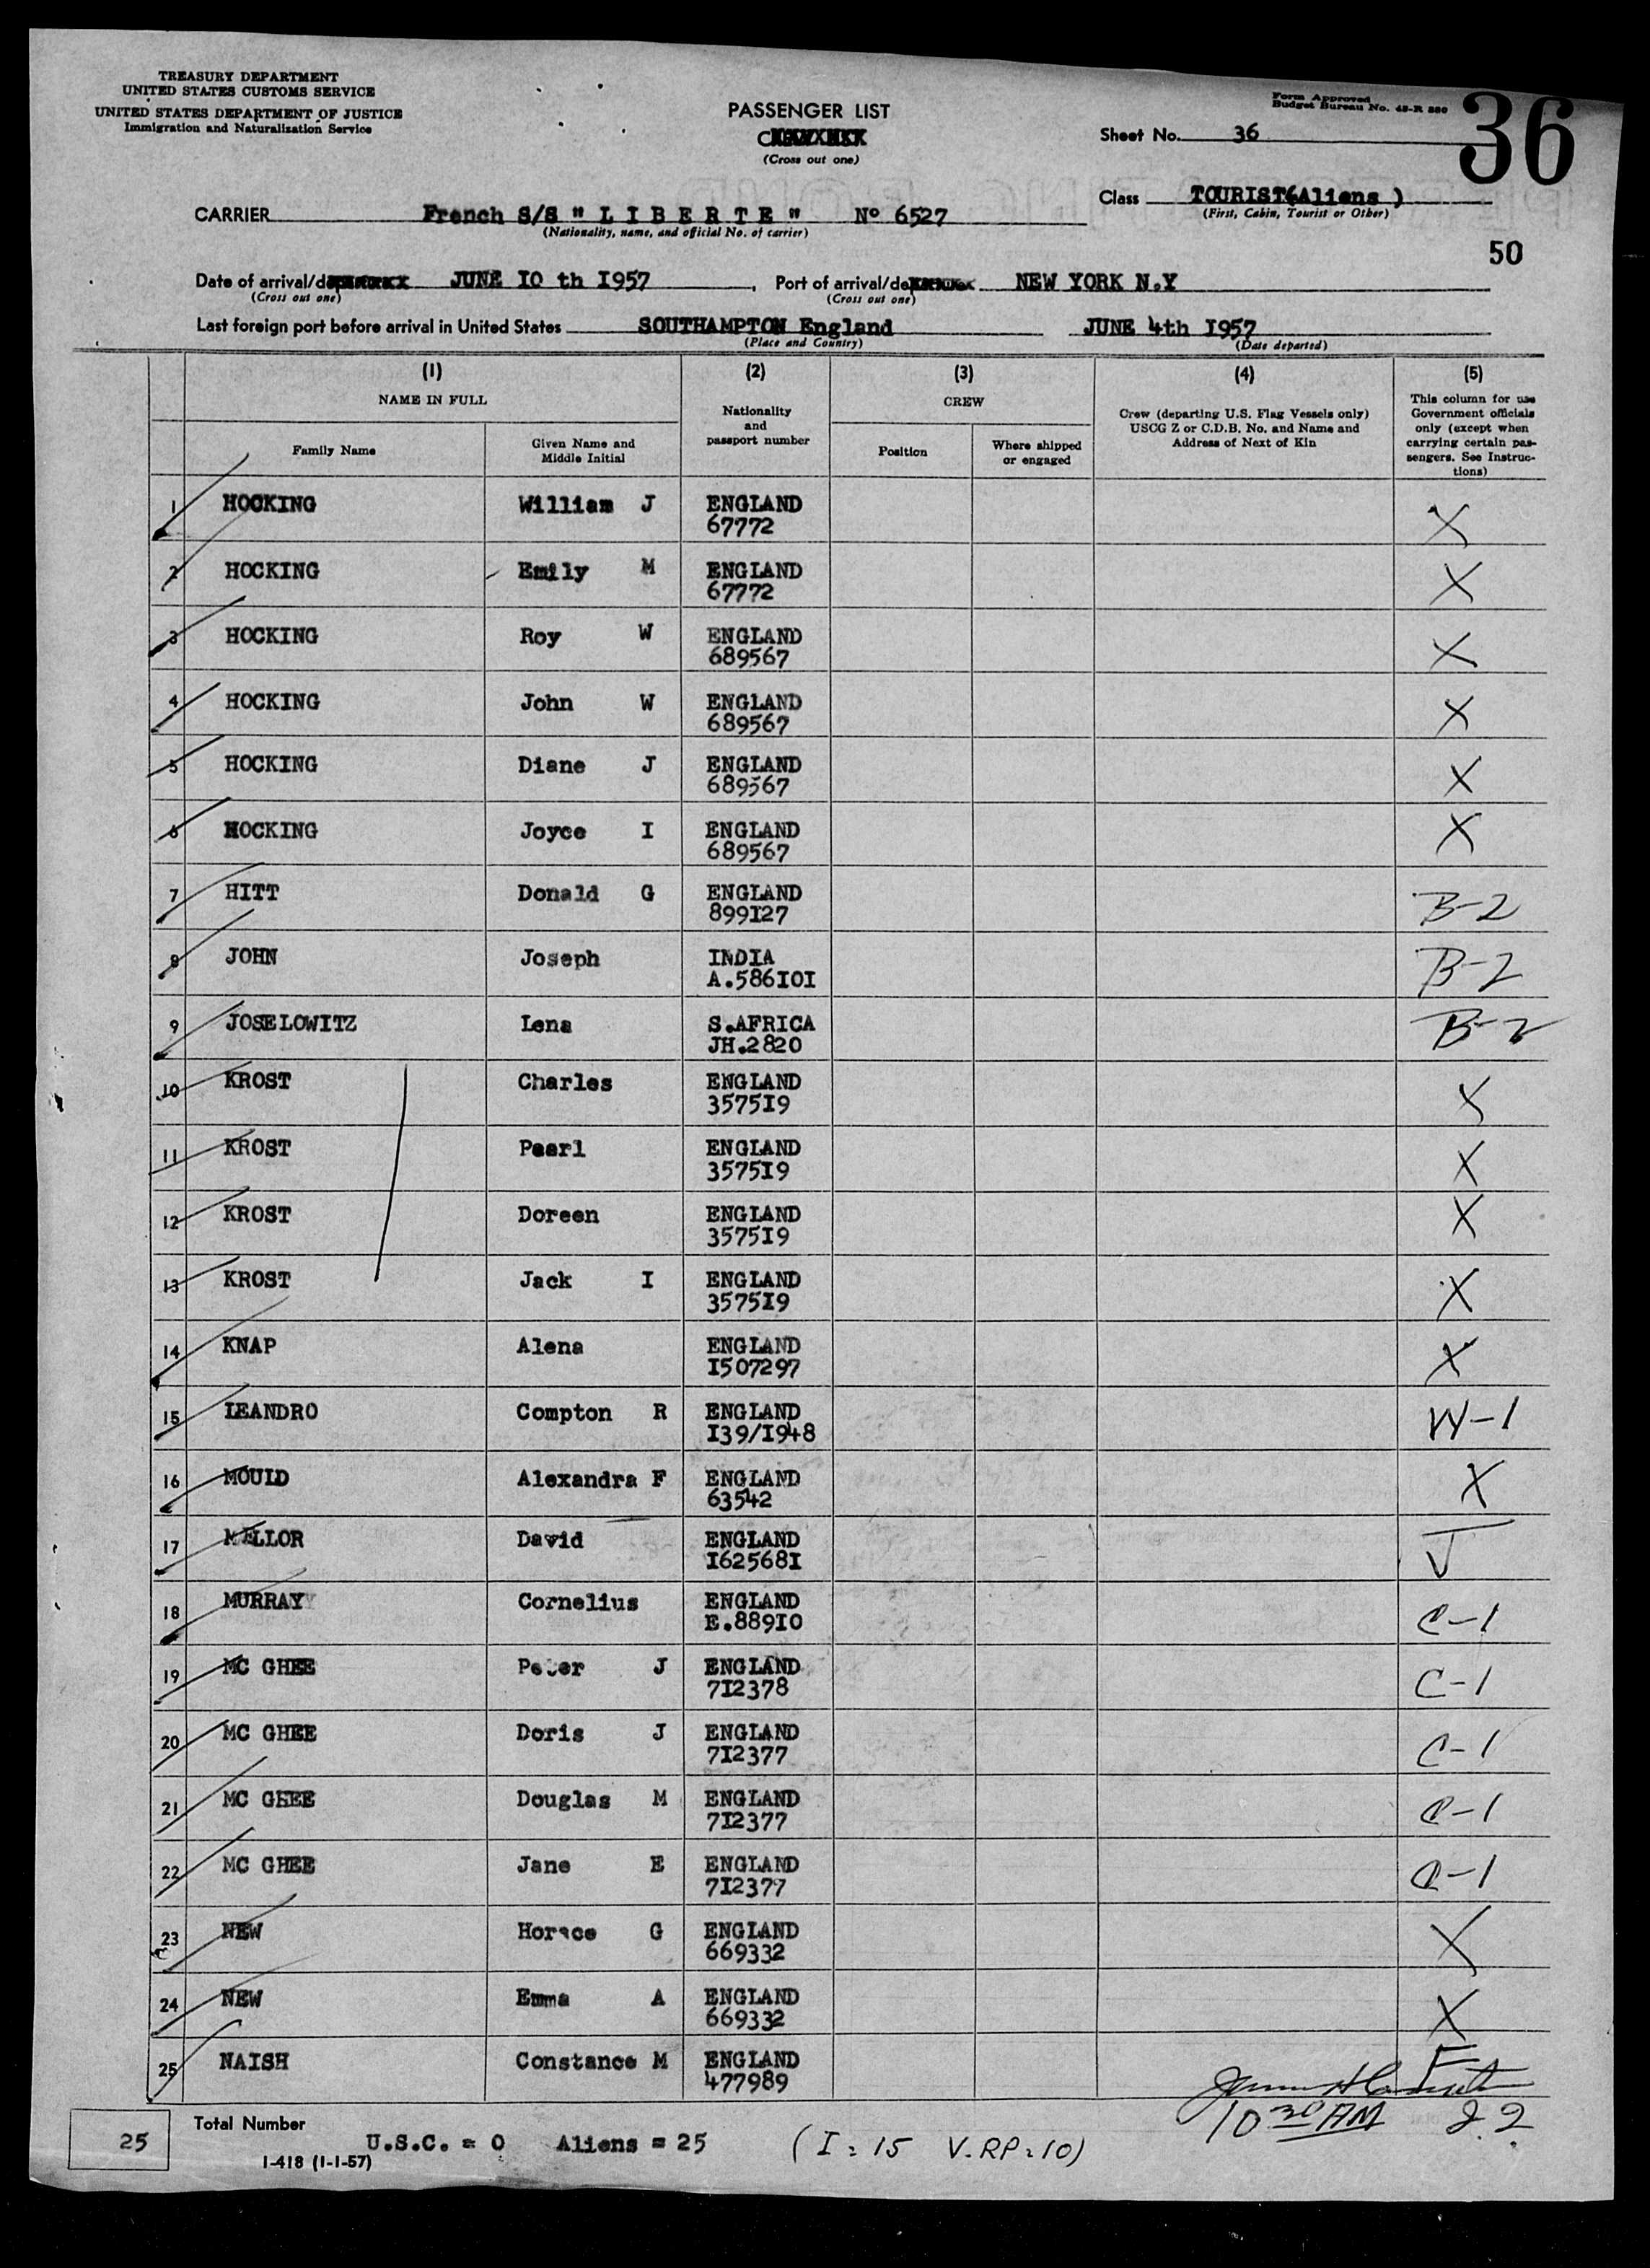 TREASURY DEPARTMENT
UNITED STATES CUSTOMS SERVICE
UNITED STATES DEPARTMENT OF JUSTICE
Immigration and Naturalization Service
PASSENGER LIST
(Cross out one)
Form Approved
Budget Bureau No. 43-R 580
Sheet No. 36
36
Class TOURIST(Aliens )
(First, Cabin, Tourist or Other)
CARRIER French S/S " L I B E R T E " N° 6527
(Nationality, name, and official No. of carrier)
50
Date of arrival/ JUNE IO th I957 , Port of arrival/ NEW YORK N.Y
(Cross out one) (Cross out one)
Last foreign port before arrival in United States SOUTHAMPTON England JUNE 4th I957
(Place and Country) (Date departed)
(1) (2) (3) (4) (5)
NAME IN FULL
Family Name
Given Name and Middle Initial
Nationality and passport number
CREW
Position
Where shipped or engaged
Crew (departing U.S. Flag Vessels only)
USCG Z or C.D.B. No. and Name and
Address of Next of Kin
This column for use
Government officials
only (except when
carrying certain pas-
sengers. See Instruc-
tions)
1 HOCKING William J ENGLAND X
67772
2 HOCKING Emily M ENGLAND X
67772
3 HOCKING Roy W ENGLAND X
689567
4 HOCKING John W ENGLAND X
689567
5 HOCKING Diane J ENGLAND X
689567
6 HOCKING Joyce I ENGLAND X
689567
7 HITT Donald G ENGLAND B-2
899I27
8 JOHN Joseph INDIA B-2
A.586IOI
9 JOSELOWITZ Lena S.AFRICA B-2
JH.2820
10 KROST Charles ENGLAND X
3575I9
11 KROST Pearl ENGLAND X
3575I9
12 KROST Doreen ENGLAND X
3575I9
13 KROST Jack I ENGLAND X
3575I9
14 KNAP Alena ENGLAND X
I507297
15 LEANDRO Compton R ENGLAND W-1
I39/I948
16 MOULD Alexandra F ENGLAND X
63542
17 MELLOR David ENGLAND J
I62568I
18 MURRAY Cornelius ENGLAND C-1
E.889IO
19 MC GHEE Peter J ENGLAND C-1
7I2378
20 MC GHEE Doris J ENGLAND C-1
7I2377
21 MC GHEE Douglas M ENGLAND C-1
7I2377
22 MC GHEE Jane E ENGLAND C-1
7I2377
23 NEW Horace G ENGLAND X
669332
24 NEW Emma A ENGLAND X
669332
25 NAISH Constance M ENGLAND F
477989
10 30 AM 22
25
Total Number
U.S.C. = 0 Aliens = 25 (I = 15 V.RP = 10)
I-418 (1-1-57)